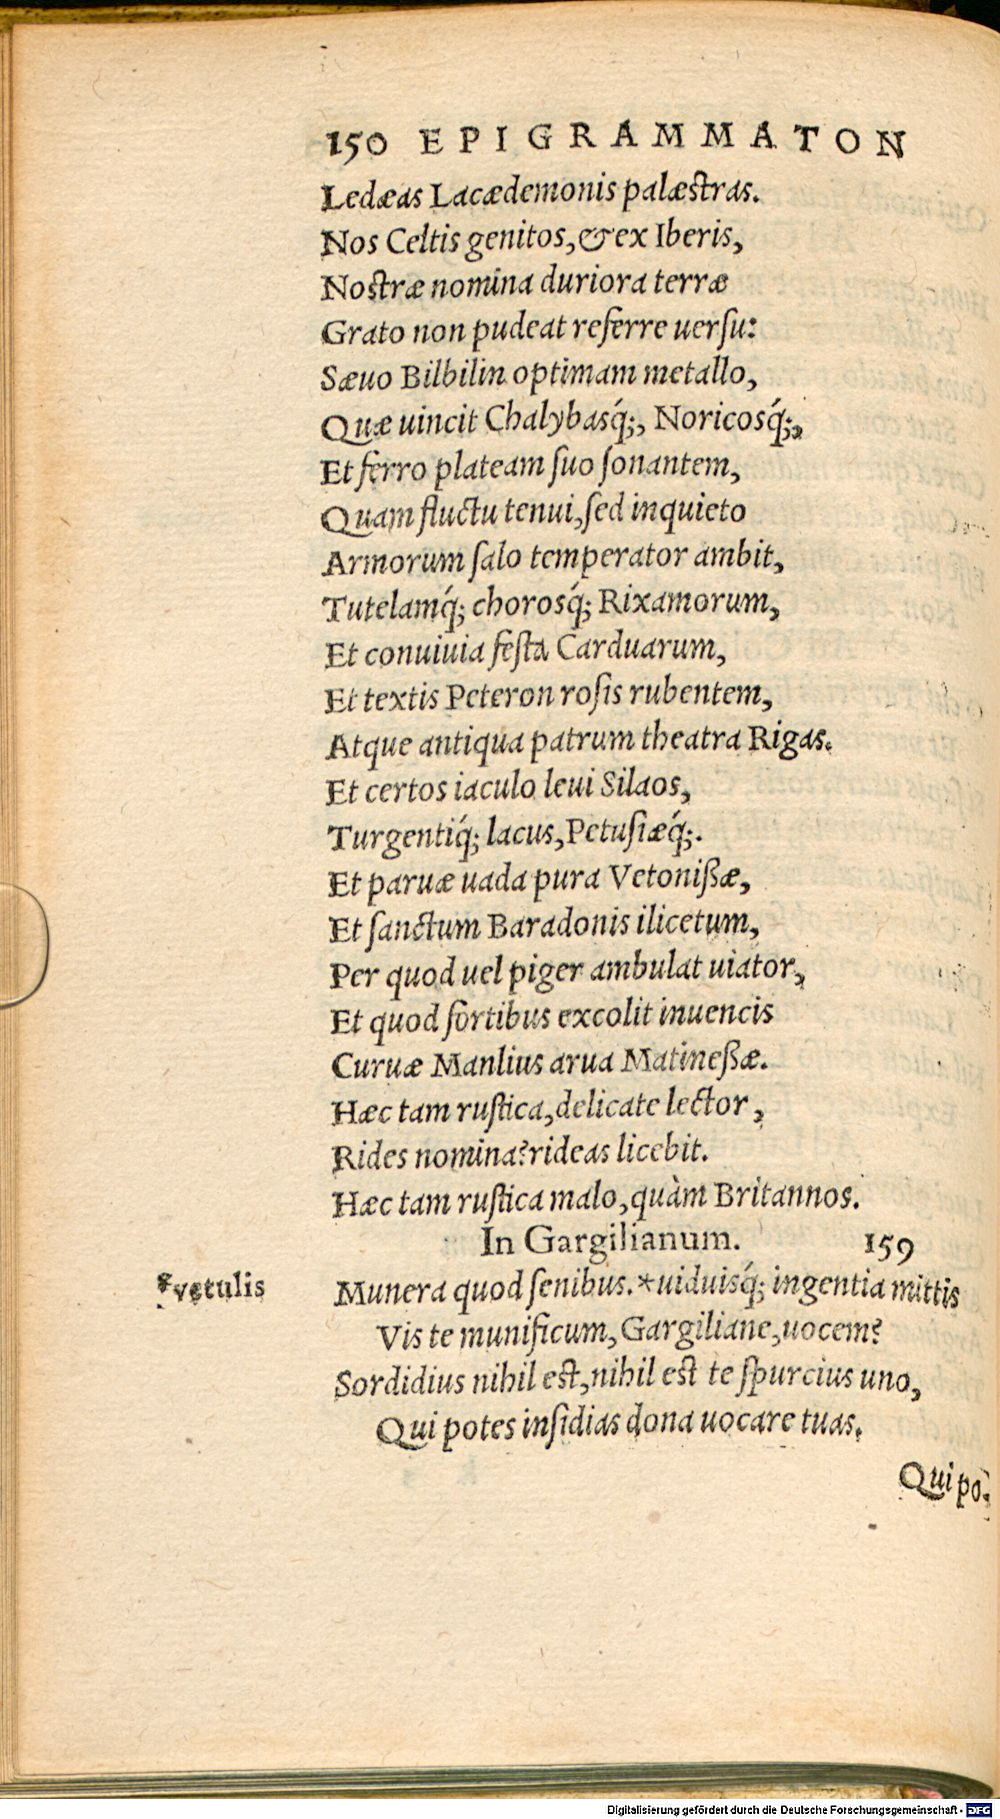 150 EPIGRAMMATON
Ledæas Lacædemonis palæstras.
Nos Celtis genitos, & ex Iberis,
Nostræ nomina duriora terræ
Grato non pudeat referre uersu:
Sæuo Bilbilin optimam metallo,
Quæ uincit Chalybasq́;, Noricosq́;,
Et ferro plateam suo sonantem,
Quam fluctu tenui, sed inquieto
Armorum salo temperator ambit,
Tutelamq́; chorosq́; Rixamorum,
Et conuiuia festa Carduarum,
Et textis Peteron rosis rubentem,
Atque antiqua patrum theatra Rigas.
Et certos iaculo leui Silaos,
Turgentiq́; lacus, Petusiæq́;.
Et paruæ uada pura Vetonißæ,
Et sanctum Baradonis ilicetum,
Per quod uel piger ambulat uiator,
Et quod fortibus excolit inuencis
Curuæ Manlius arua Matineßæ.
Hæc tam rustica, delicate lector,
Rides nomina? rideas licebit.
Hæc tam rustica malo, quàm Britannos.
In Gargilianum. 159
*vetulis Munera quod senibus.*uiduisq́; ingentia mittis
Vis te munificum, Gargiliane, uocem?
Sordidius nihil est, nihil est te spurcius uno,
Qui potes insidias dona uocare tuas.
Qui po-
Digitalisierung gefördert durch die Deutsche Forschungsgemeinschaft - DFG